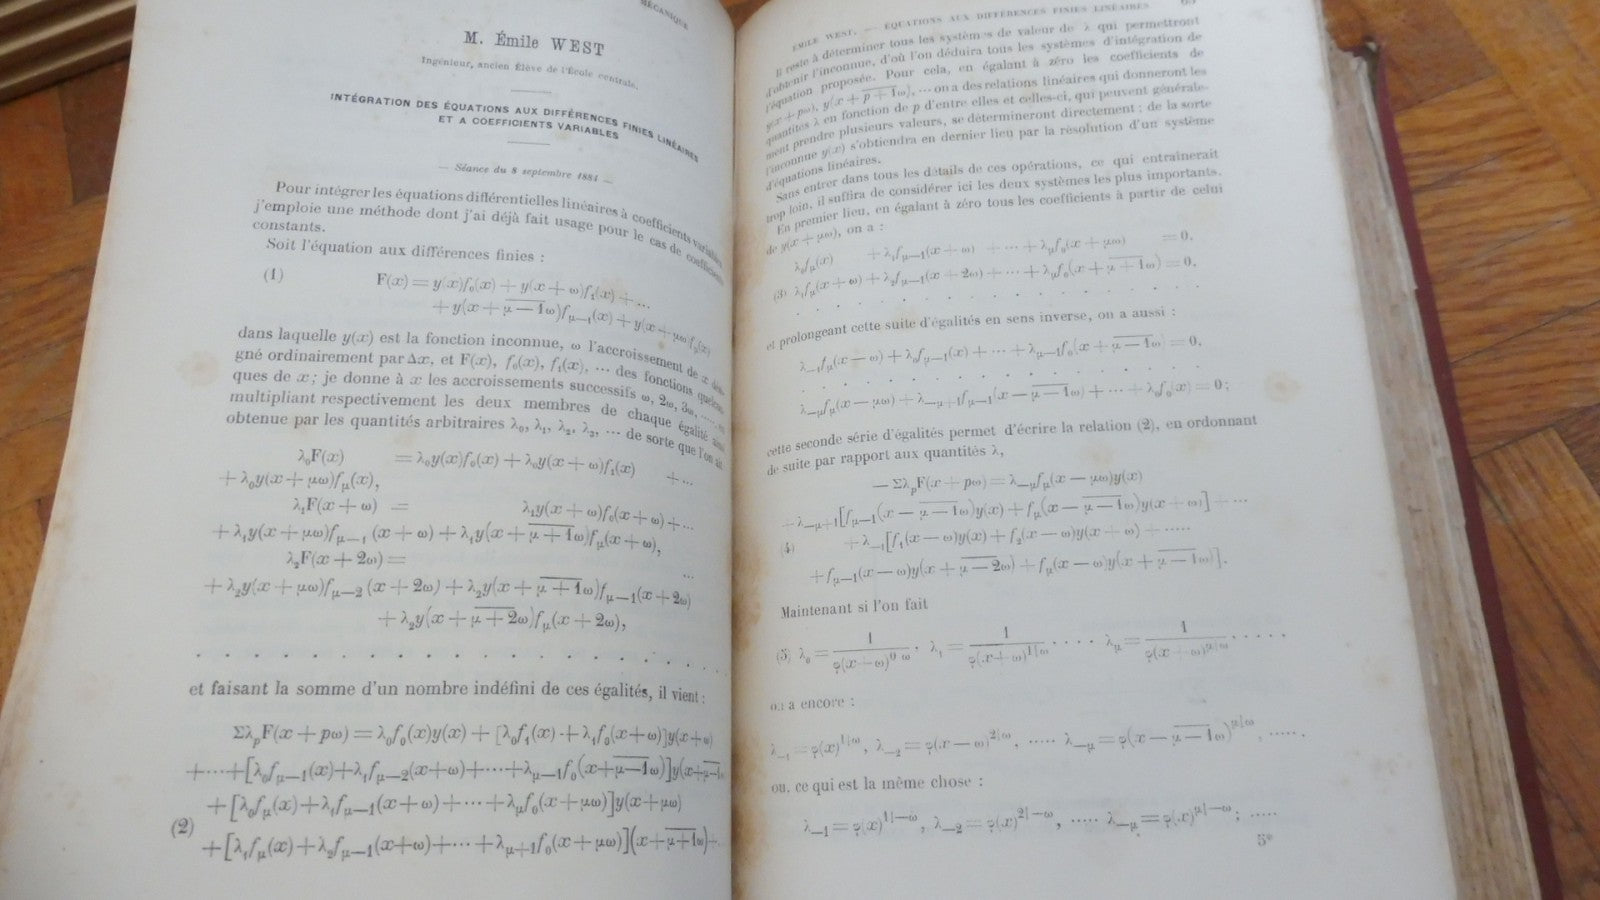 MÉCANIQUE
M. Émile WEST
Ingénieur, ancien Élève de l'École centrale.
INTÉGRATION DES ÉQUATIONS AUX DIFFÉRENCES FINIES LINÉAIRES
ET A COEFFICIENTS VARIABLES
— Séance du 8 septembre 1881 —
Pour intégrer les équations différentielles linéaires à coefficients variables
j'emploie une méthode dont j'ai déjà fait usage pour le cas de coefficients
constants.
Soit l'équation aux différences finies :
(1) F(x) = y(x)f₀(x) + y(x + ω)f₁(x) + ...
+ y(x + μ̅ ̅—̅ ̅1̅ω)f_{μ—1}(x) + y(x + μω)f_μ(x)
dans laquelle y(x) est la fonction inconnue, ω l'accroissement de x dési-
gné ordinairement par Δx, et F(x), f₀(x), f₁(x), ... des fonctions quelcon-
ques de x ; je donne à x les accroissements successifs ω, 2ω, 3ω, ....., en
multipliant respectivement les deux membres de chaque égalité ainsi
obtenue par les quantités arbitraires λ₀, λ₁, λ₂, λ₃, ... de sorte que l'on ait
λ₀F(x) = λ₀y(x)f₀(x) + λ₀y(x + ω)f₁(x) + ...
+ λ₀y(x + μω)f_μ(x),
λ₁F(x + ω) = λ₁y(x + ω)f₀(x + ω) + ...
+ λ₁y(x + μω)f_{μ—1} (x + ω) + λ₁y(x + μ̅ ̅+̅ ̅1̅ω)f_μ(x + ω),
λ₂F(x + 2ω) = ...
+ λ₂y(x + μω)f_{μ—2} (x + 2ω) + λ₂y(x + μ̅ ̅+̅ ̅1̅ω)f_{μ—1}(x + 2ω)
+ λ₂y(x + μ̅ ̅+̅ ̅2̅ω)f_μ(x + 2ω),
. . . . . . . . . . . . . . . . . . .
et faisant la somme d'un nombre indéfini de ces égalités, il vient :
Σλ_pF(x + pω) = λ₀f₀(x)y(x) + [λ₀f₁(x) + λ₁f₀(x+ω)]y(x+ω)
+...+[λ₀f_{μ—1}(x)+λ₁f_{μ—2}(x+ω)+...+λ_{μ—1}f₀(x+μ̅—̅1̅ω)]y(x+μ̅—̅1̅
+ [λ₀f_μ(x)+λ₁f_{μ—1}(x+ω)+...+λ_μf₀(x+μω)]y(x+μω)
(2) +[λ₁f_μ(x)+λ₂f_{μ—1}(x+ω)+...+λ_{μ+1}f₀(x+μω)](x+μ̅+̅1̅ω)+
ÉMILE WEST. — ÉQUATIONS AUX DIFFÉRENCES FINIES LINÉAIRES
Il reste à déterminer tous les systèmes de valeur de λ qui permettront
d'obtenir l'inconnue, d'où l'on déduira tous les systèmes d'intégration de
l'équation proposée. Pour cela, en égalant à zéro les coefficients de
y(x + pω), y(x + p̅ ̅+̅ ̅1̅ω), ... on a des relations linéaires qui donneront les
quantités λ en fonction de p d'entre elles et celles-ci, qui peuvent générale-
ment prendre plusieurs valeurs, se détermineront directement ; de la sorte
l'inconnue y(x) s'obtiendra en dernier lieu par la résolution d'un système
d'équations linéaires.
Sans entrer dans tous les détails de ces opérations, ce qui entraînerait
trop loin, il suffira de considérer ici les deux systèmes les plus importants.
En premier lieu, en égalant à zéro tous les coefficients à partir de celui
de y(x + μω), on a :
λ₀f_μ(x) + λ₁f_{μ—1}(x + ω) + ... + λ_μf₀(x + μω) = 0,
(3) λ₁f_μ(x + ω) + λ₂f_{μ—1}(x + 2ω) + ... + λ_μf₀(x + μ̅ ̅+̅ ̅1̅ω) = 0,
. . . . . . . . . . . . .
et prolongeant cette suite d'égalités en sens inverse, on a aussi :
λ_{—1}f_μ(x — ω) + λ₀f_{μ—1}(x) + ... + λ_{μ—1}f₀(x + μ̅ ̅—̅ ̅1̅ω) = 0,
. . . . . . . . . . . . .
λ_{—μ}f_μ(x — μω) + λ_{—μ+1}f_{μ—1}(x — μ̅ ̅—̅ ̅1̅ω) + ... + λ₀f₀(x) = 0 ;
cette seconde série d'égalités permet d'écrire la relation (2), en ordonnant
de suite par rapport aux quantités λ,
— Σλ_pF(x + pω) = λ_{—μ}f_μ(x — μω)y(x)
+ λ_{—μ+1}[f_{μ—1}(x — μ̅ ̅—̅ ̅1̅ω)y(x) + f_μ(x — μ̅ ̅—̅ ̅1̅ω)y(x + ω)] + ...
(4) + λ_{—1}[f₁(x — ω)y(x) + f₂(x — ω)y(x + ω) + .....
+ f_{μ—1}(x — ω)y(x + μ̅ ̅—̅ ̅2̅ω) + f_μ(x — ω)y(x + μ̅ ̅—̅ ̅1̅ω)].
Maintenant si l'on fait
(5) λ₀ = 1/φ(x+ω)^{0|ω} . λ₁ = 1/φ(x+ω)^{1|ω} . . . . λ_μ = 1/φ(x+ω)^{μ|ω} . . . . .
on a encore :
λ_{—1} = φ(x)^{1|ω}, λ_{—2} = φ(x — ω)^{2|ω}, ..... λ_{—μ} = φ(x — μ̅ ̅—̅ ̅1̅ω)^{μ|ω}, .....
ou, ce qui est la même chose :
λ_{—1} = φ(x)^{1|—ω}, λ_{—2} = φ(x)^{2|—ω}, ..... λ_{—μ} = φ(x)^{μ|—ω} ; .....
5*